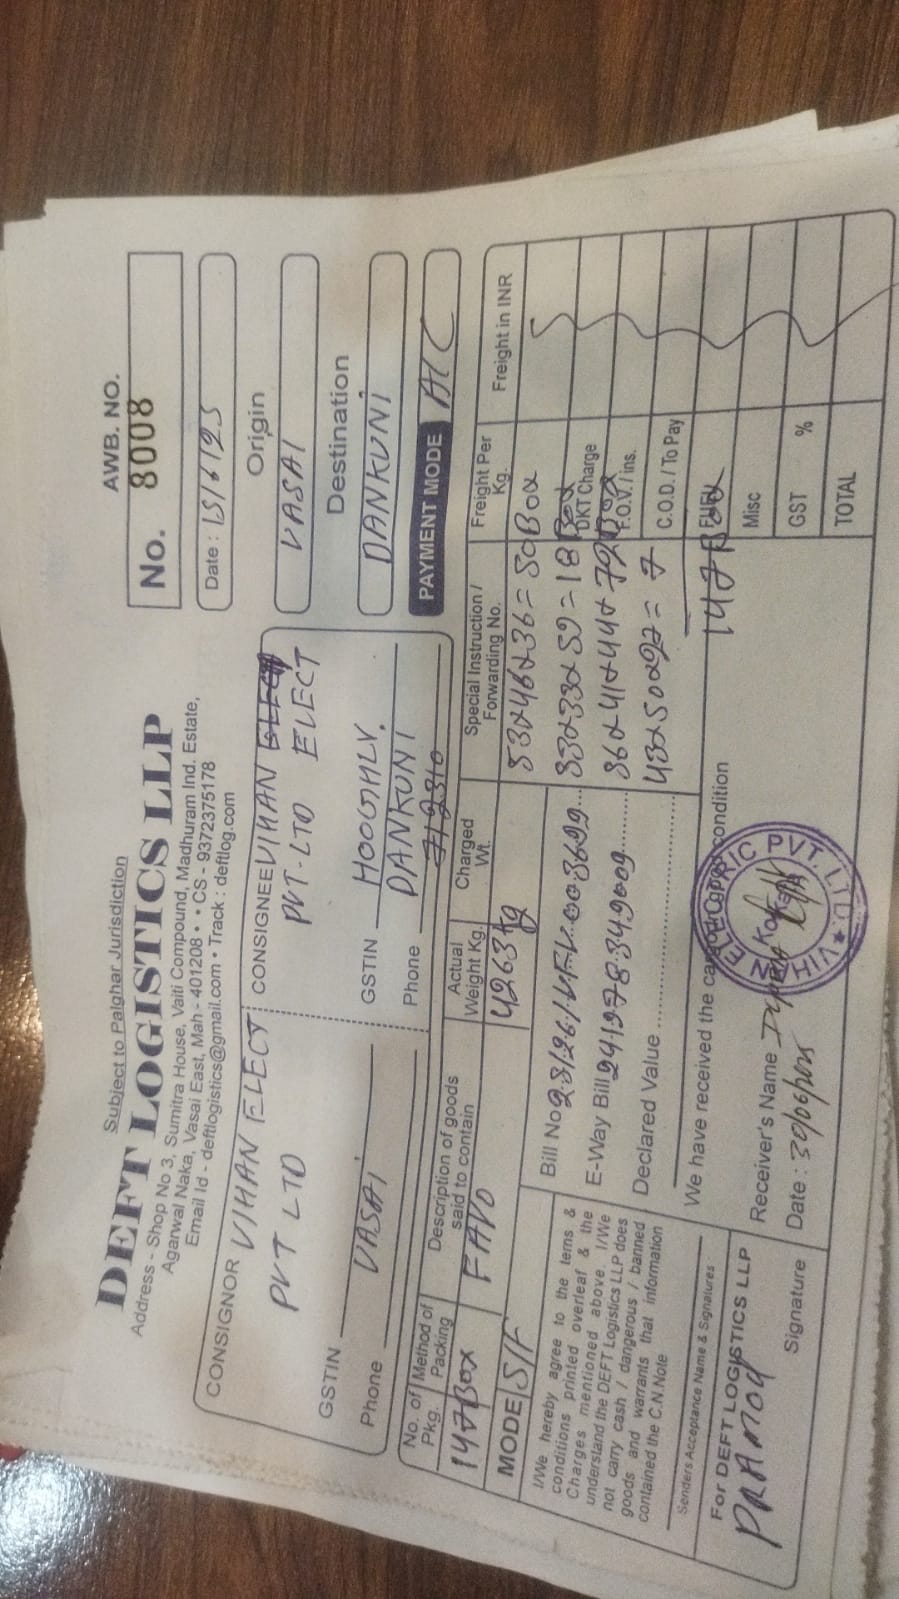 Subject to Palghar Jurisdiction
DEFT LOGISTICS LLP
Address - Shop No 3, Sumitra House, Vaiti Compound, Madhuram Ind. Estate,
Agarwal Naka, Vasai East, Mah - 401208 • • CS - 9372375178
Email Id - deftlogistics@gmail.com • Track : deftlog.com
AWB. NO.
No. 8008
Date : 15/6/25
Origin
VASAI
Destination
DANKUNI
PAYMENT MODE A/C
CONSIGNOR VIHAN ELECT
PVT LTD
GSTIN
VASAI
Phone
CONSIGNEE VIHAN
PVT-LTD ELECT
GSTIN HOOGHLY.
DANKUNI
Phone 712310
No. of Pkg.
Method of Packing
Description of goods said to contain
Actual Weight Kg.
Charged Wt.
Special Instruction / Forwarding No.
Freight Per Kg.
Freight in INR
147 Box
FAVO
4263 kg
53x46x36 = 50 Box
33x33x59 = 18 Box
36x41x44x72 Box
43x50x97 = 7
147 Box
MODE S/F
Bill No 25/26/VFV003699
E-Way Bill 241978349009
Declared Value
DKT Charge
F.O.V. / ins.
C.O.D. / To Pay
FUEL
Misc
GST %
TOTAL
I/We hereby agree to the tems &
conditions printed overleaf & the
Charges mentioned above. I/We
understand the DEFT Logistics LLP does
not carry cash / dangerous / banned
goods and warrants that information
contained the C.N.Note
Senders Acceptance Name & Signatures
For DEFT LOGISTICS LLP
PRAMOD
Signature
We have received the cargo in good condition
Receiver's Name
Date : 30/06/2025
VIHAN ELECTRIC PVT. LTD.
Kolkata